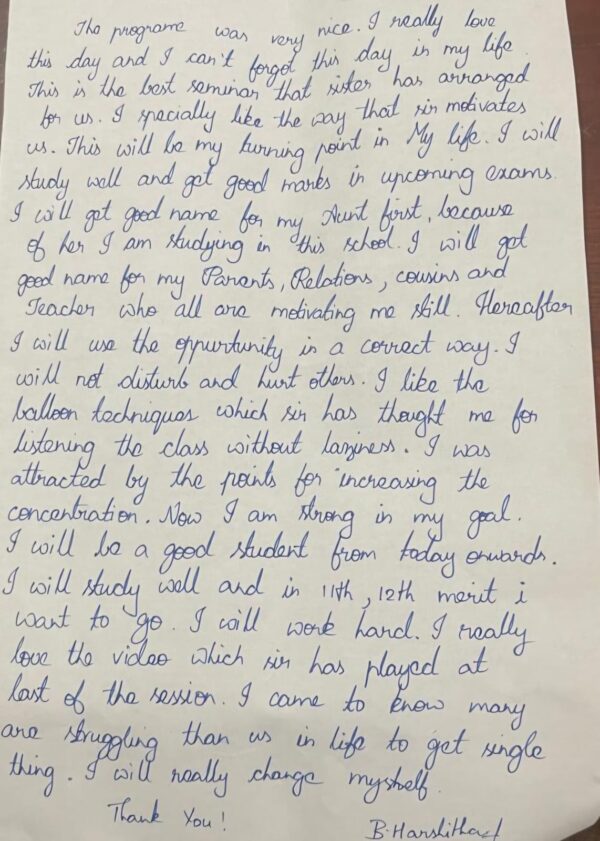 The programe was very nice. I really love
this day and I can't forget this day in my life.
This is the best seminar that sister has arranged
for us. I specially like the way that sir motivates
us. This will be my turning point in My life. I will
study well and get good marks in upcoming exams.
I will get good name for my Aunt first, because
of her I am studying in this school. I will get
good name for my Parents, Relations, cousins and
Teacher who all are motivating me still. Hereafter
I will use the oppurtunity in a correct way. I
will not disturb and hurt others. I like the
balloon techniques which sir has thought me for
listening the class without laziness. I was
attracted by the points for increasing the
concentration. Now I am strong in my goal.
I will be a good student from today onwards.
I will study well and in 11th, 12th merit i
want to go. I will work hard. I really
love the video which sir has played at
last of the session. I came to know many
are struggling than us in life to get single
thing. I will really change myshelf.
Thank You!